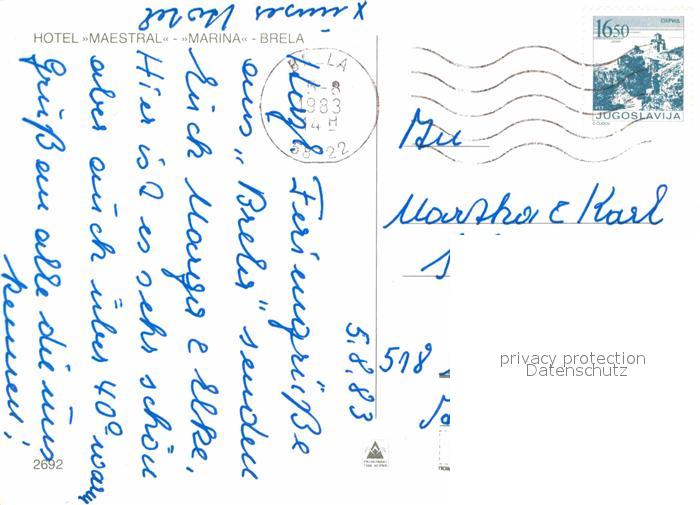 HOTEL »MAESTRAL« - »MARINA« - BRELA
x unser Hotel
5.8.83
Feriengrüße
aus „Brela" senden
Euch Marga & Elke.
Hier ist es sehr schön
aber auch über 40° warm
Grüßen alle die uns
kennen!
2692
1983
14 H
58 22
16.50
JUGOSLAVIJA
An
Martha & Karl
518
privacy protection
Datenschutz